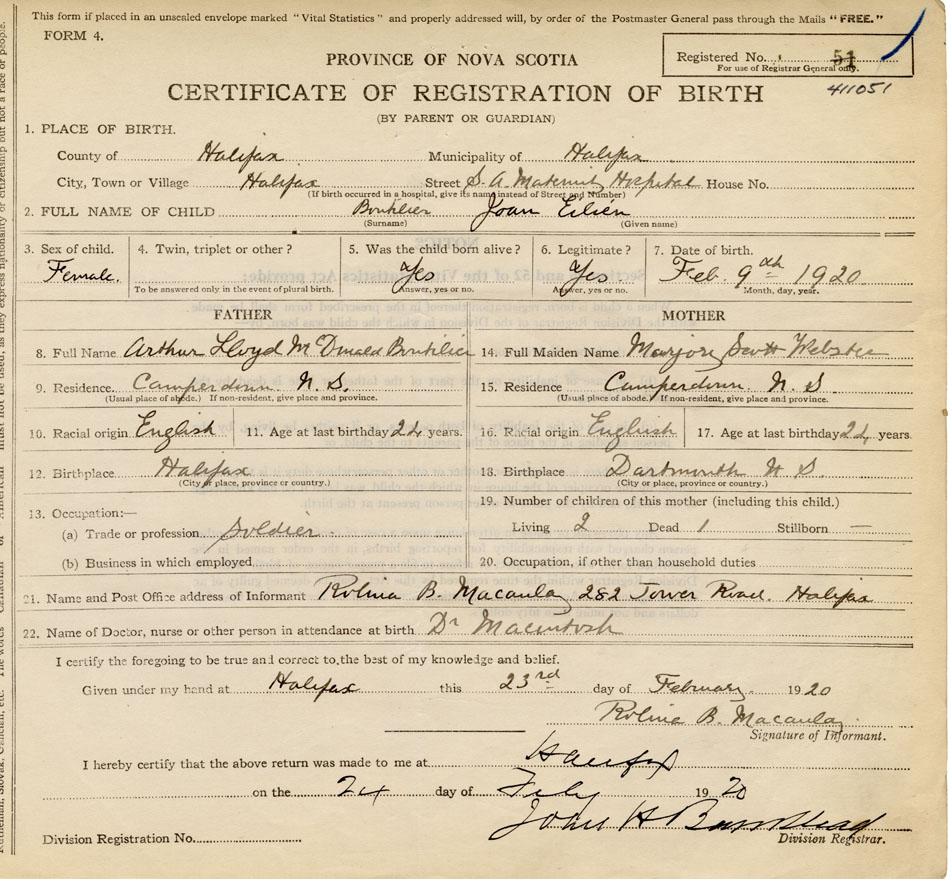 This form if placed in an unsealed envelope marked "Vital Statistics" and properly addressed will, by order of the Postmaster General pass through the Mails "FREE."
FORM 4.
Registered No. 51
For use of Registrar General only.
411051
PROVINCE OF NOVA SCOTIA
CERTIFICATE OF REGISTRATION OF BIRTH
(BY PARENT OR GUARDIAN)
1. PLACE OF BIRTH.
County of Halifax Municipality of Halifax
City, Town or Village Halifax Street S. A. Maternity Hospital House No.
(If birth occurred in a hospital, give its name instead of Street and Number)
2. FULL NAME OF CHILD Boutilier Joan Eilien
(Surname) (Given name)
3. Sex of child. 4. Twin, triplet or other? 5. Was the child born alive? 6. Legitimate? 7. Date of birth.
Female. Yes Yes. Feb. 9th 1920
To be answered only in the event of plural birth. Answer, yes or no. Answer, yes or no. Month, day, year.
FATHER MOTHER
8. Full Name Arthur Lloyd McDonald Boutilier 14. Full Maiden Name Marjory Scott Webster
9. Residence. Camperdown N. S. 15. Residence Camperdown N. S
(Usual place of abode.) If non-resident, give place and province. (Usual place of abode.) If non-resident, give place and province.
10. Racial origin English 11. Age at last birthday 24 years. 16. Racial origin English 17. Age at last birthday 24 years.
12. Birthplace Halifax 18. Birthplace Dartmouth N S.
(City or place, province or country.) (City or place, province or country.)
13. Occupation:— 19. Number of children of this mother (including this child.)
(a) Trade or profession Soldier. Living 2 Dead 1 Stillborn —
(b) Business in which employed 20. Occupation, if other than household duties
21. Name and Post Office address of Informant Rolina B. Macaulay 282 Tower Road. Halifax
22. Name of Doctor, nurse or other person in attendance at birth Dr Macintosh
I certify the foregoing to be true and correct to the best of my knowledge and belief.
Given under my hand at Halifax this 23rd day of February 1920
Rolina B. Macaulay
Signature of Informant.
I hereby certify that the above return was made to me at Halifax
on the 24 day of Feby 1920
John H
Division Registration No. Division Registrar.